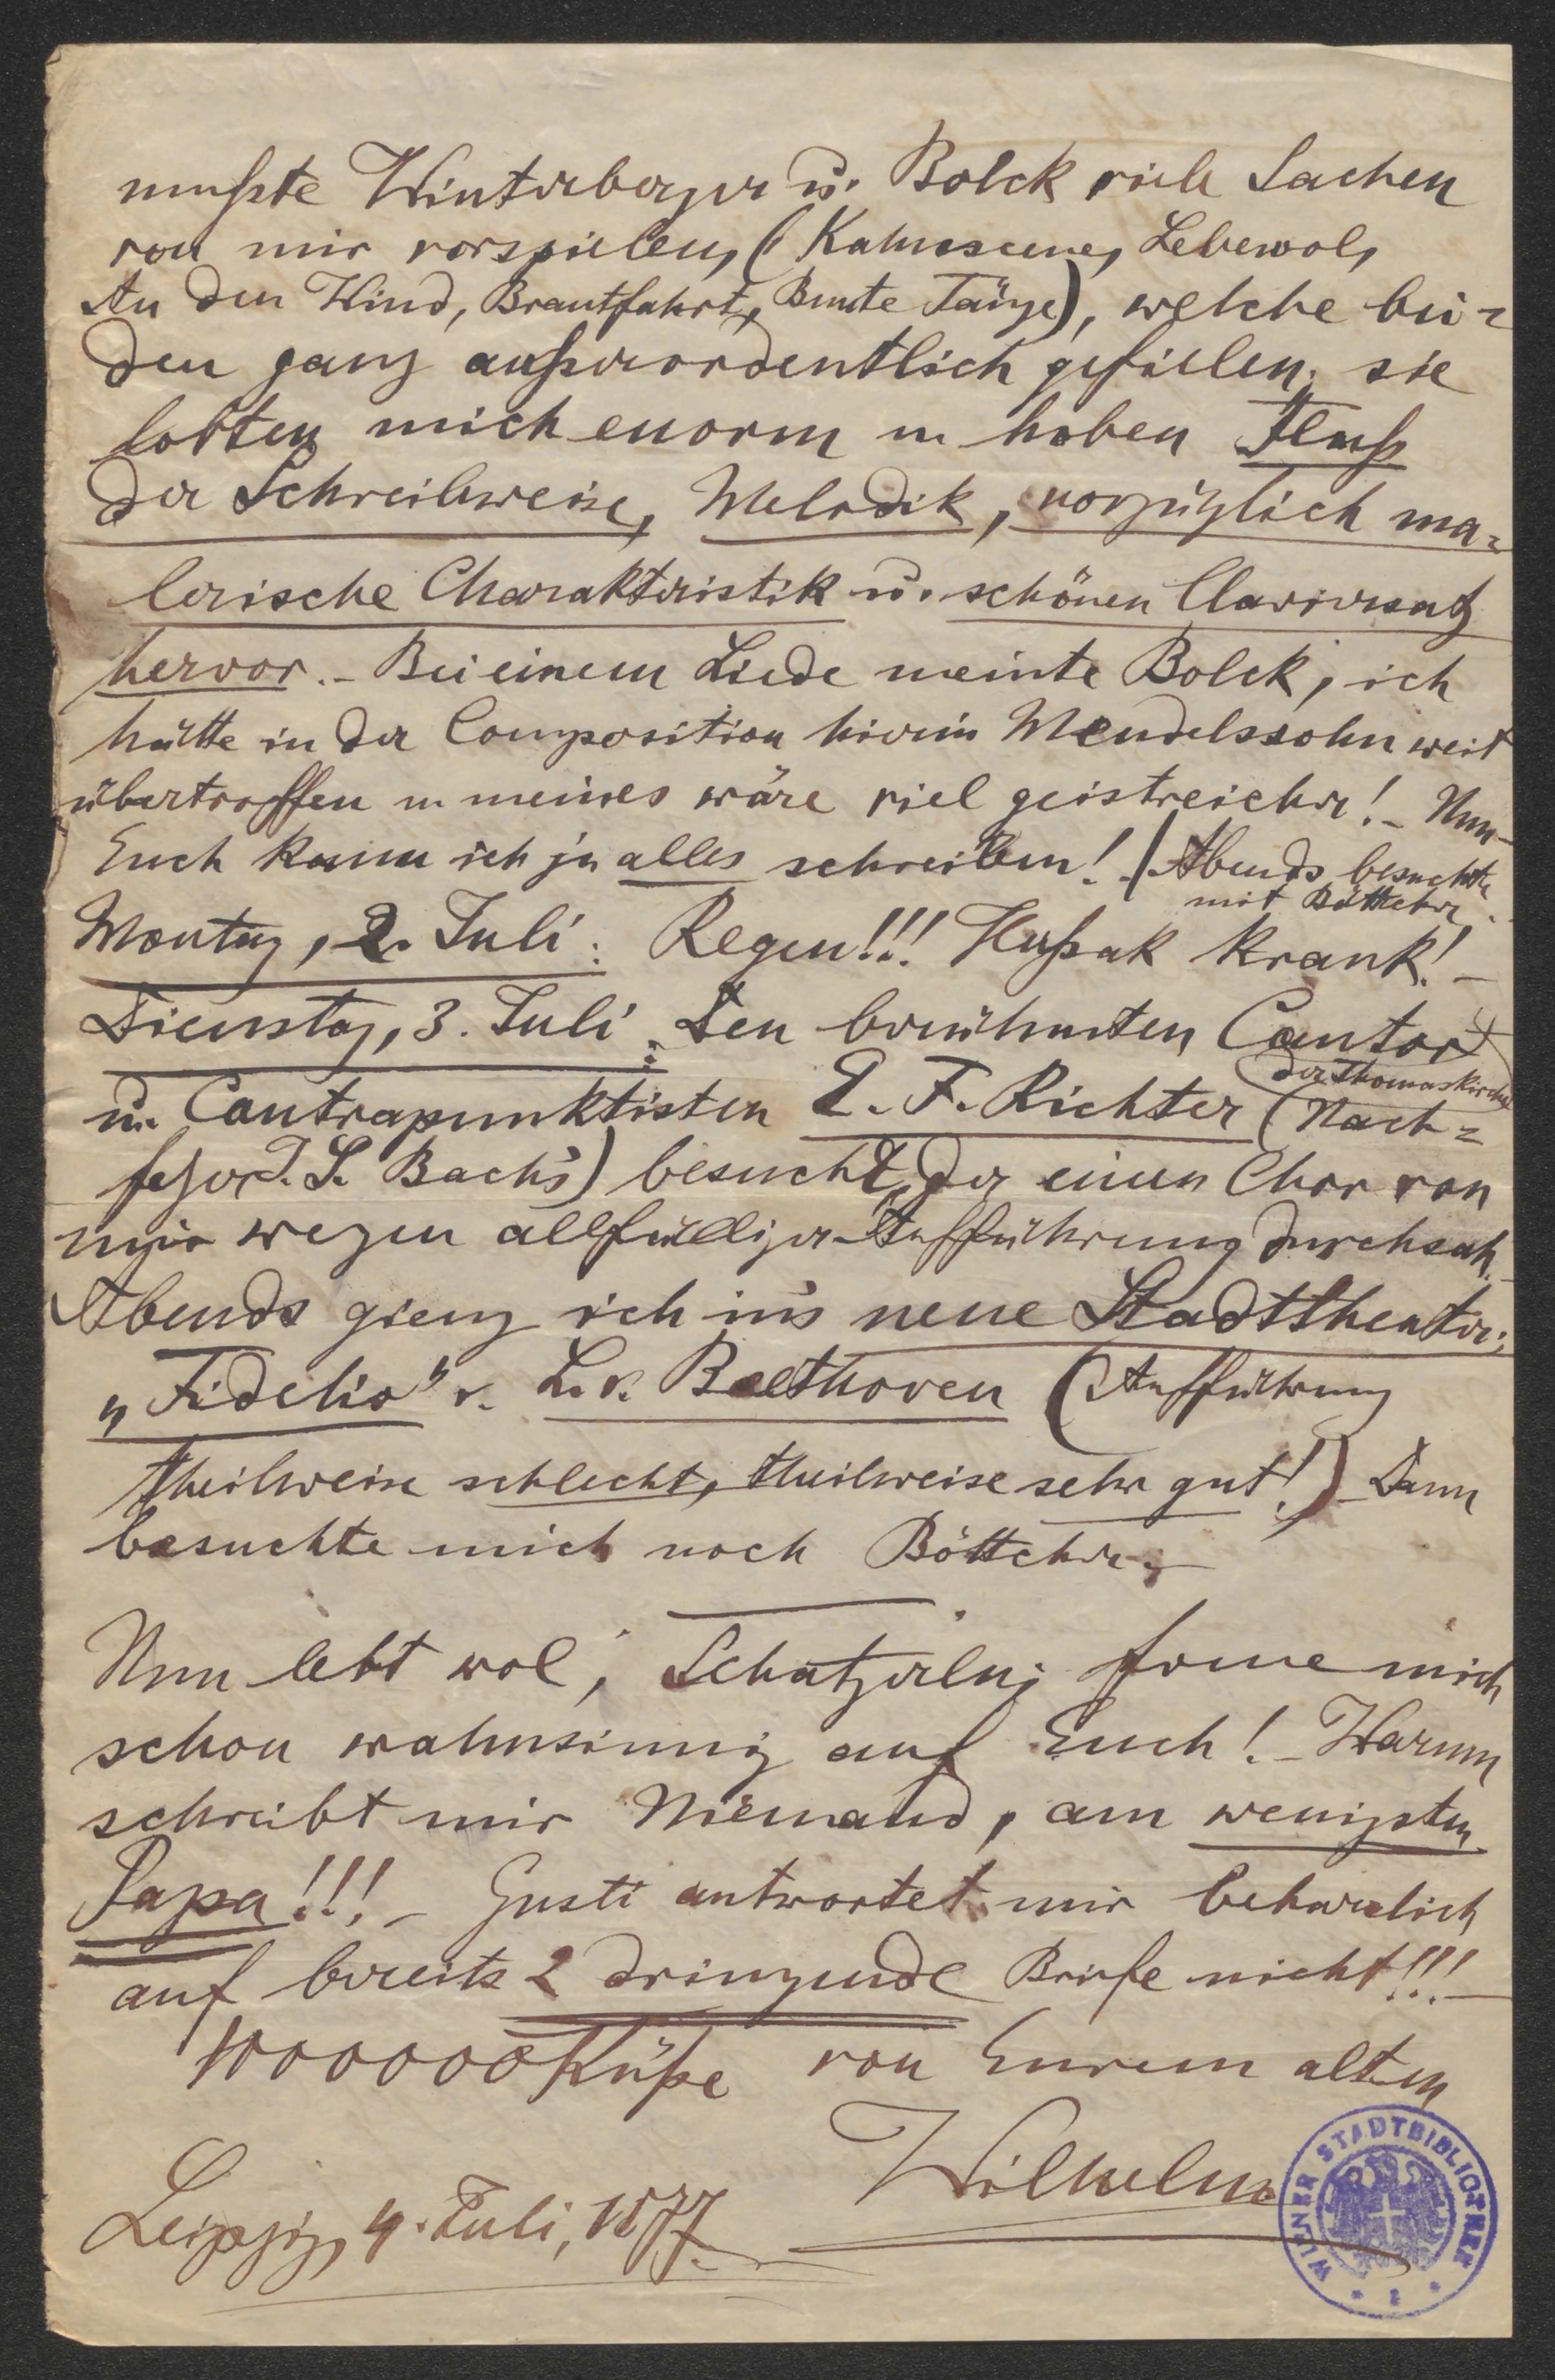 mußte Winterberger u. Bolck viele Sachen
von mir vorspielen, (Kahnscene, Lebewol,
An den Wind, Brautfahrt, Bunte Tänze), welche bei=
den ganz außerordentlich gefielen; sie
lobten mich enorm u. hoben Fluß
der Schreibweise, Melodik, vorzüglich ma=
lerische Charakteristik u. schönen Claviersatz
hervor. – Bei einem Liede meinte Bolck, ich
hätte in der Composition hierin Mendelssohn weit
übertroffen u. meines wäre viel geistreicher! – Nun –
Euch kann ich ja alles schreiben! – (Abends besuchte
mit Böttcher.
Montag, 2. Juli: Regen!!! Hußak krank! –
Dienstag, 3. Juli: Den berühmten Cantor
der Thomaskirche
u. Contrapunktisten E. F. Richter (Nach=
folger J. S. Bach's) besucht, der einen Chor von
mir wegen allfälliger Aufführung durchsah. –
Abends gieng ich in's neue Stadttheater:
„Fidelio" v. L. v. Beethoven (Aufführung
theilweise schlecht, theilweise sehr gut!) – Dann
besuchte mich noch Böttcher. –
Nun lebt wol, Schatzerln; freue mich
schon wahnsinnig auf Euch! – Warum
schreibt mir Niemand, am wenigsten
Papa!!! – Gusti antwortet mir beharrlich
auf bereits 2 dringende Briefe nicht!!! –
1000000 Küße von Eurem alten
Wilhelm
Leipzig, 4. Juli, 1877. –
WIENER STADTBIBLIOTHEK